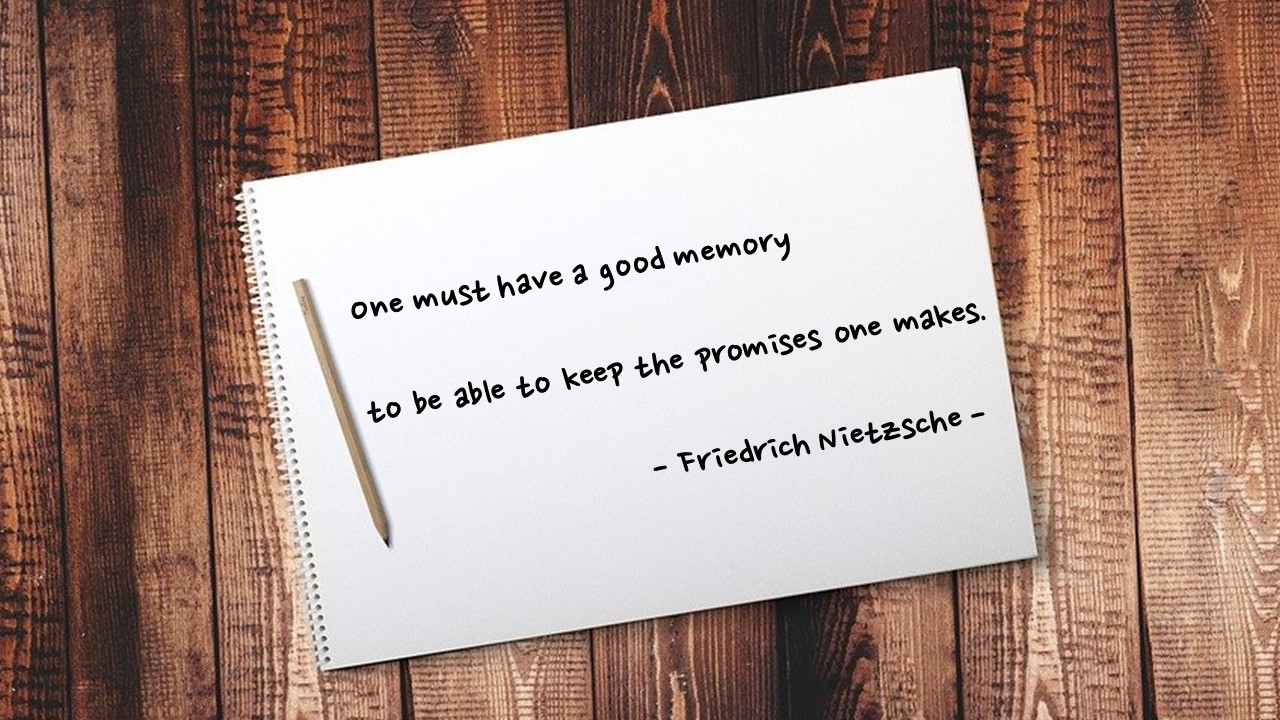 one must have a good memory
to be able to keep the promises one makes.
- Friedrich Nietzsche -